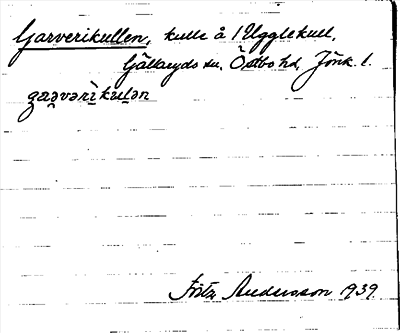 Garverikullen, kulle å 1 Ugglekull,
Gällaryds sn, Östbo hd, Jönk. l.
Fritz Andersson 1939.